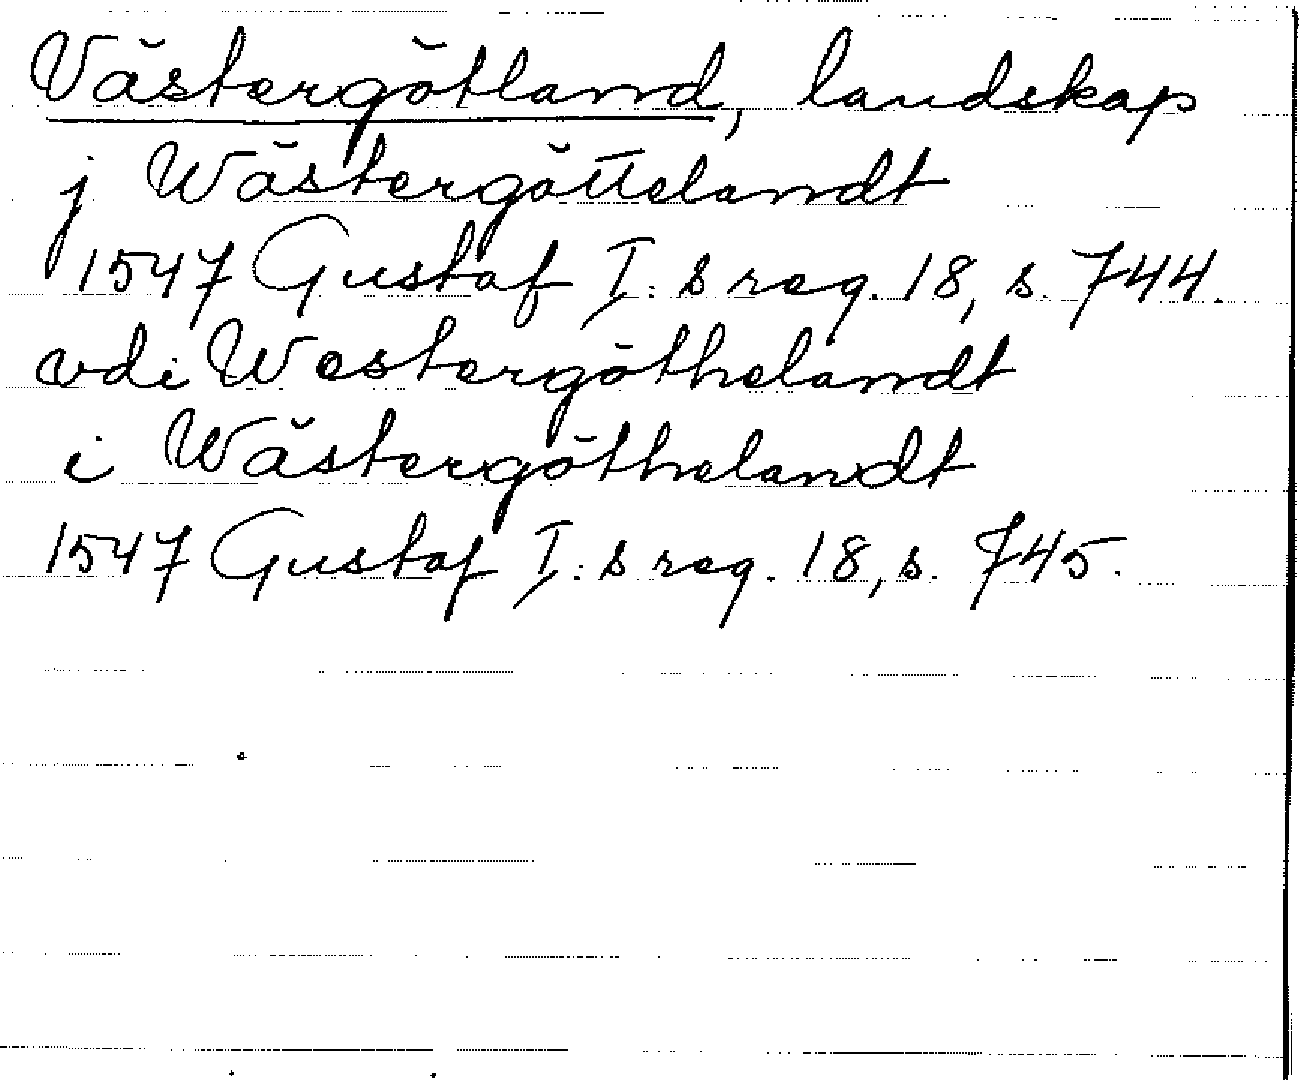 Västergötland, landskap
j Wästergöttelandt
1547 Gustaf I:s reg. 18, s. 744.
vdi Westergöthelandt
i Wästergöthelandt
1547 Gustaf I:s reg. 18, s. 745.